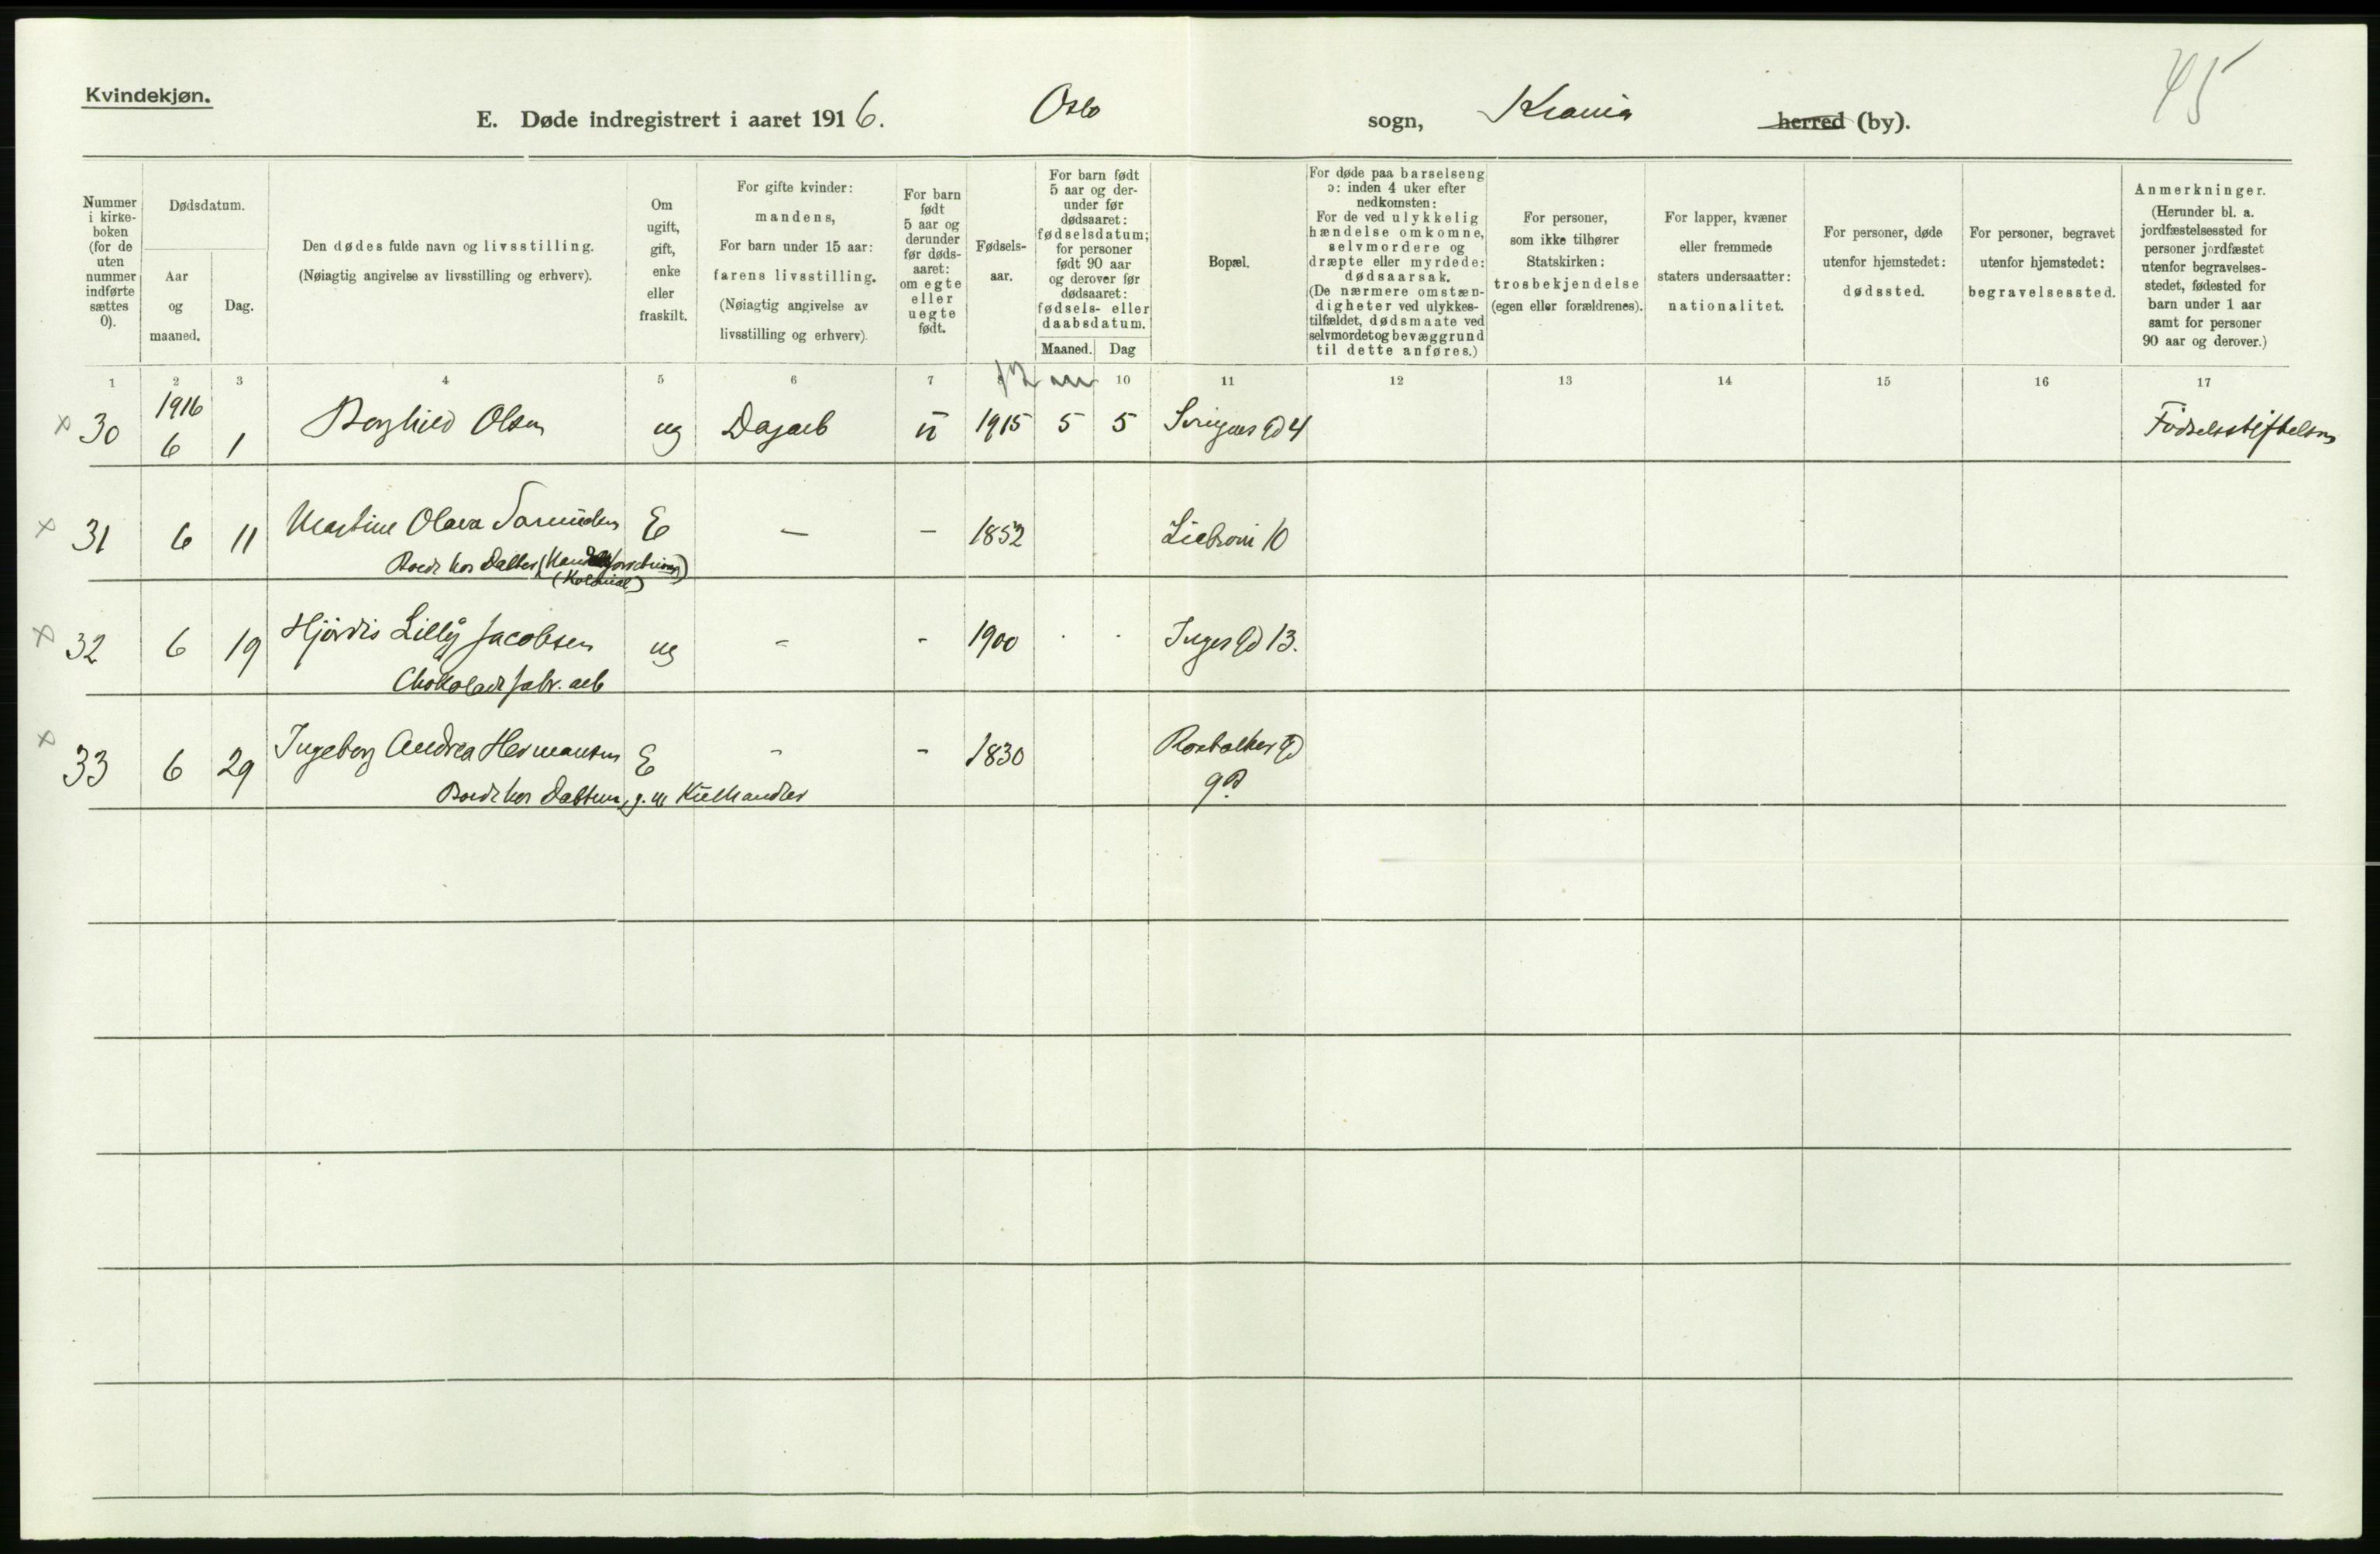 Kvindekjøn.
45
E. Døde indregistrert i aaret 1916. Oslo sogn, Krania herred (by).
Nummer i kirke- boken (for de uten nummer indførte sættes 0).
Dødsdatum.
Aar og maaned.
Dag.
Den dødes fulde navn og livsstilling.
(Nøiagtig angivelse av livsstilling og erhverv).
Om ugift, gift, enke eller fraskilt.
For gifte kvinder:
mandens,
For barn under 15 aar:
farens livsstilling.
(Nøiagtig angivelse av
livsstilling og erhverv).
For barn født 5 aar og derunder før døds- aaret: om egte eller uegte født.
Fødsels- aar.
For barn født 5 aar og der- under før dødsaaret: fødselsdatum; for personer født 90 aar og derover før dødsaaret: fødsels- eller daabsdatum.
Maaned. Dag
Bopæl.
For døde paa barselseng
ɔ: inden 4 uker efter
nedkomsten:
For de ved ulykkelig
hændelse omkomne,
selvmordere og
dræpte eller myrdede:
dødsaarsak.
(De nærmere omstæn-
digheter ved ulykkes-
tilfældet, dødsmaate ved
selvmordet og bevæggrund
til dette anføres.)
For personer,
som ikke tilhører
Statskirken:
trosbekjendelse
(egen eller forældrenes).
For lapper, kvæner
eller fremmede
staters undersaatter:
nationalitet.
For personer, døde
utenfor hjemstedet:
dødssted.
For personer, begravet
utenfor hjemstedet:
begravelsessted.
Anmerkninger.
(Herunder bl. a.
jordfæstelsessted for
personer jordfæstet
utenfor begravelses-
stedet, fødested for
barn under 1 aar
samt for personer
90 aar og derover.)
1 2 3 4 5 6 7 10 11 12 13 14 15 16 17
1916
× 30 6 1 Borghild Olsen ug Dagarb u 1915 5 5 Schweigaards Gd 4 Fødselsstiftelsen
× 31 6 11 Martine Olava E — — 1852 10
Boede hos Datter
(Kolonial)
× 32 6 19 Hjördis Lilly Jacobsen ug - - 1900 Inges Gd 13.
Chokoladefabr. arb
× 33 6 29 Ingeborg Andrea Hermansen E - - 1830 Gd
Boede hos Datteren, g. m Kulhandler